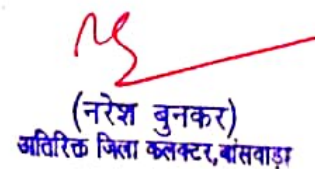 (नरेश बुनकर)
अतिरिक्त जिला कलक्टर,बांसवाड़ा